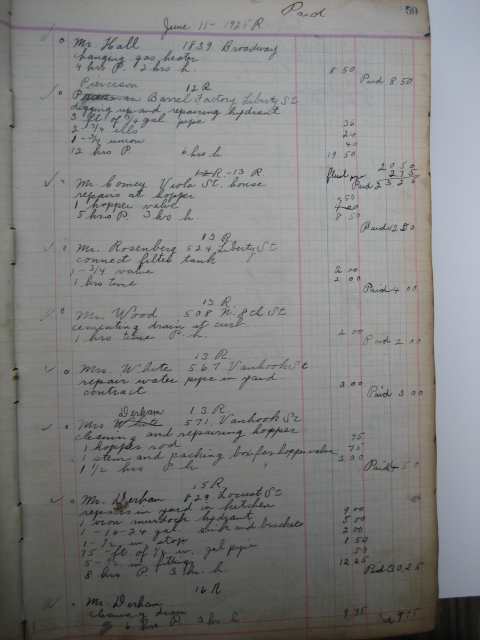 Paid 59
June 11 - 1925 R
Mr. Hall 1839 Broadway
hanging gas heater
4 hrs P. 2 hrs h 8 50
Paid 8 50
Pierceson 12 R
Barrel Factory Liberty St
digging up and repairing hydrant
3 ft of 3/4 gal pipe 36
2 - 3/4 ells 24
1 - 3/4 union 40
12 hrs P. 6 hrs h 19 50
20 50
2 75
Paid 23 25
12 R - 13 R
Mr. Comey Viola St. house
repairs at hopper
1 hopper valve
5 hrs P. 3 hrs h 8 50
Paid 12 50
13 R
Mr. Rosenberg 524 Liberty St
connect filter tank
1 - 3/4 valve 2 00
1 hrs time 2 00
Paid 4 00
13 R
Mr. Wood 508 N. 8th St
cementing drain at curb
1 hrs time P. h. 2 00
Paid 2 00
13 R
Mrs. White 567 Vanhook St
repair water pipe in yard
contract 3 00
Paid 3 00
Derham 13 R
Mrs White 571 Vanhook St
cleaning and repairing hopper
1 hopper rod 75
1 stem and packing box for hopper valve 75
1 1/2 hrs P h 3 00
Paid 4 50
15 R
Mr. Derham 829 Locust St
repairs in yard in kitchen
1 iron murdock hydrant 9 00
1 - 16-24 gal sink and brackets 5 00
1 - 1/2 in stop 2 00
15 - ft of 1/2 in. gal pipe 1 50
5 - 1/2 in fittings 50
8 hrs P. 3 hrs. h. 12 25
Paid 30 25
16 R
Mr. Derham
cleaning drain
6 hrs P. 3 hr. h 9 75